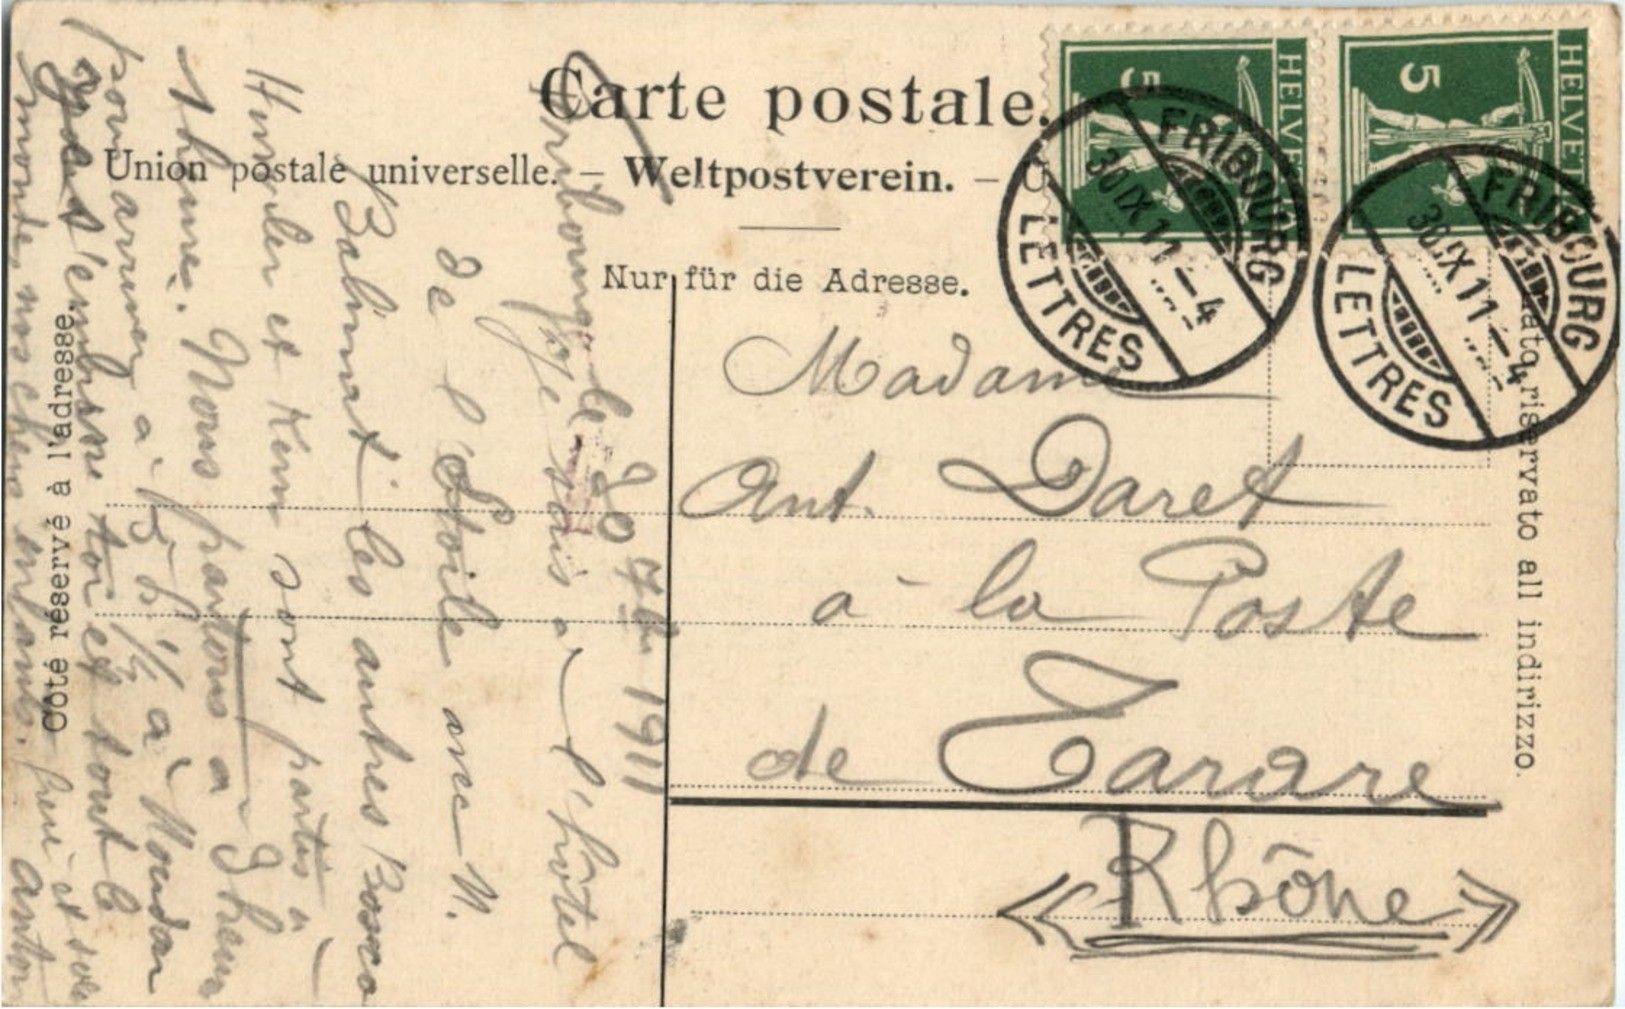 Carte postale.
Union postale universelle. – Weltpostverein. – U
Nur für die Adresse.
Côté réservé à l'adresse.
lato riservato all indirizzo.
HELVETIA
5
HELVETIA
5
FRIBOURG
30 IX 11 – 4
LETTRES
FRIBOURG
30 IX 11 – 4
LETTRES
Madame
Ant. Daret
à la Poste
de Tarare
Rhône
Fribourg le 30 7bre 1911
Je suis à l'hôtel
de l'Étoile avec M.
Balmat les autres Bosco
et Kern sont partis à
1 heure. Nous partons à 3 heures
pour arriver à 5 h ½ à Moudon
t'embrasse toi et tout le
monde, nos chers enfants.